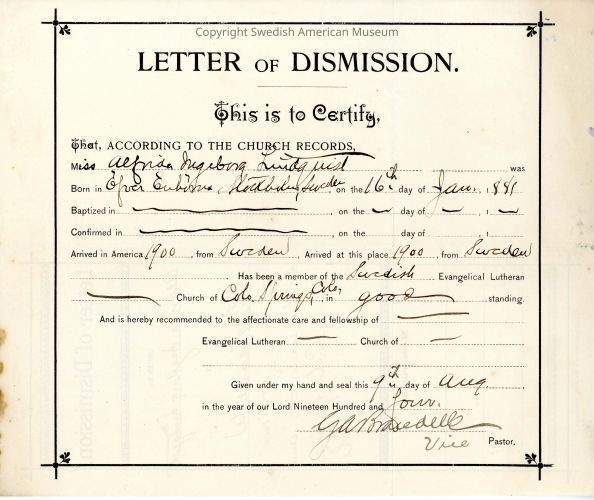 Copyright Swedish American Museum
LETTER OF DISMISSION.
This is to Certify,
That, ACCORDING TO THE CHURCH RECORDS,
Miss Alfrida Ingeborg Lindquist was
Born in Sweden on the 16th day of Jan., 1881
Baptized in — , on the — day of — , —
Confirmed in — , on the day of
Arrived in America 1900 , from Sweden . Arrived at this place 1900 , from Sweden
. Has been a member of the Swedish Evangelical Lutheran
— Church of Colo. Springs, Colo, , in good standing.
And is hereby recommended to the affectionate care and fellowship of —
Evangelical Lutheran — Church of —
Given under my hand and seal this 9th day of Aug.
in the year of our Lord Nineteen Hundred and Four.
Vice Pastor.